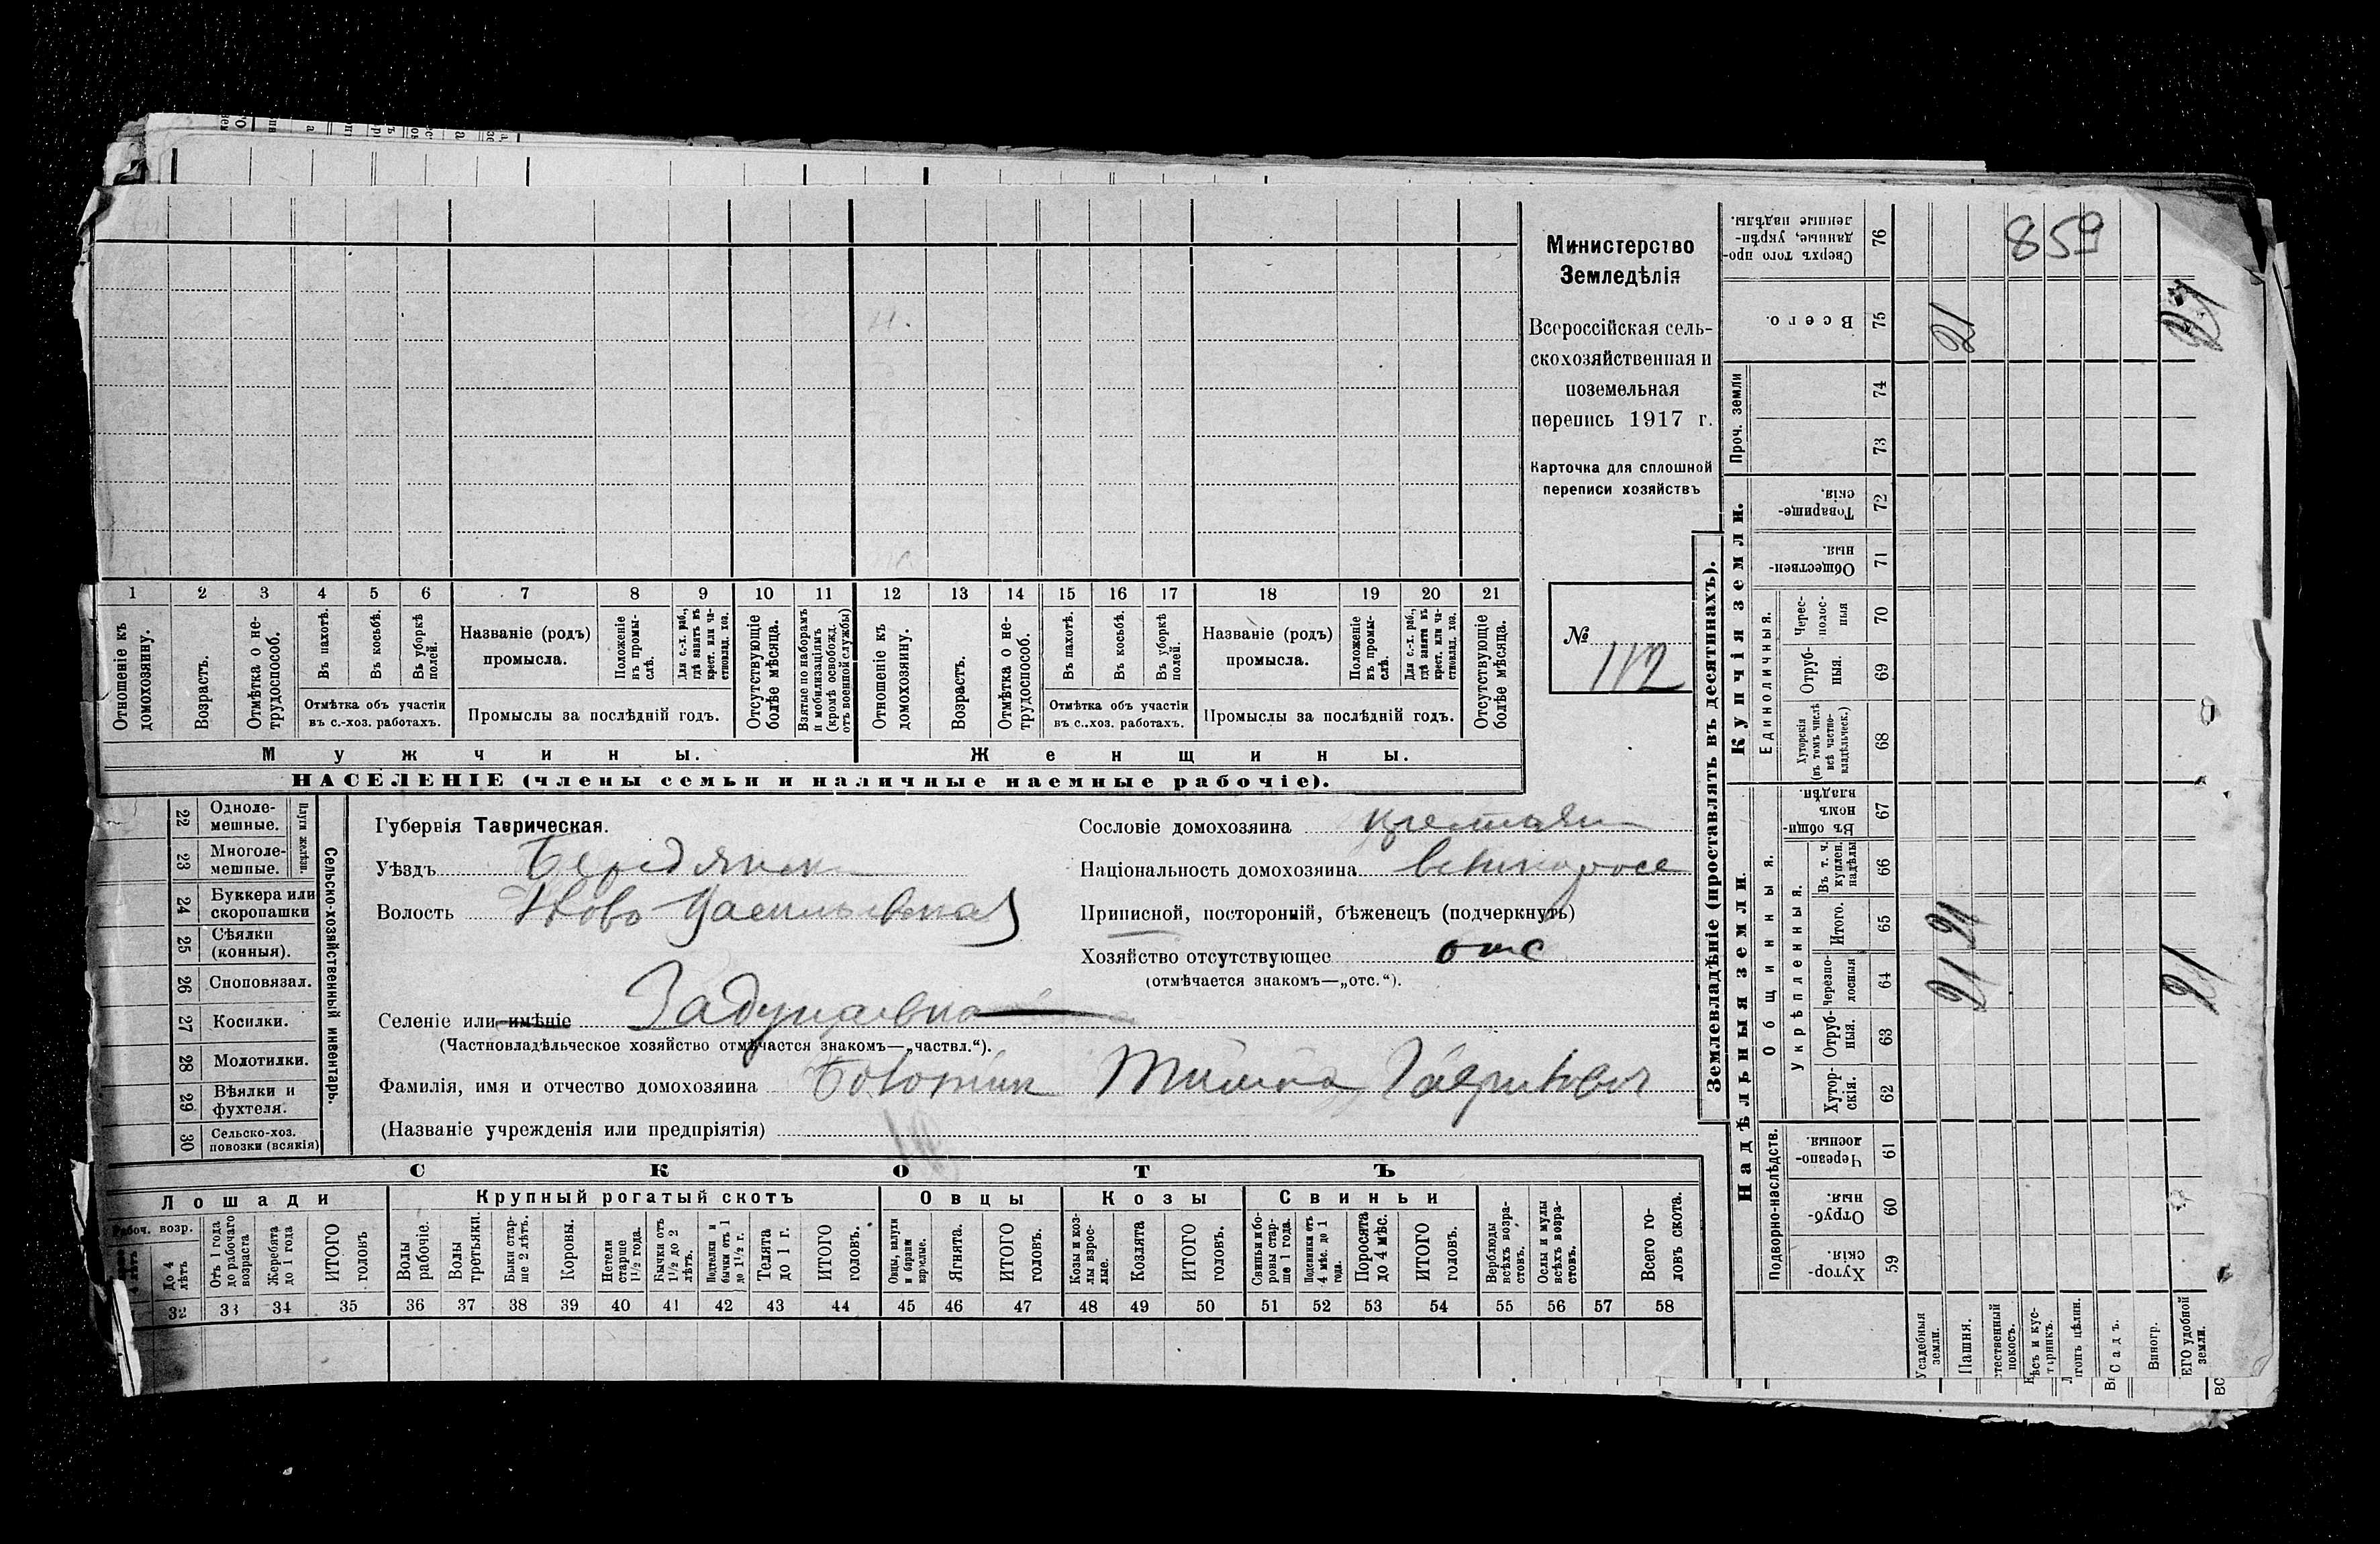 859
Министерство
Земледѣлія
Всероссійская сель-
скохозяйственная и
поземельная
перепись 1917 г.
Карточка для сплошной
переписи хозяйствъ
№
112
1 2 3 4 5 6 7 8 9 10 11 12 13 14 15 16 17 18 19 20 21
Отношеніе къ домохозяину.
Возрастъ.
Отмѣтка о не-трудоспособ.
Въ пахотѣ.
Въ косьбѣ.
Въ уборкѣ полей.
Отмѣтка объ участіи
въ с.-хоз. работахъ.
Названіе (родъ)
промысла.
Положеніе въ промы-слѣ.
Для с.-х. раб., гдѣ занятъ въ крест. или ча-стновлад. хоз.
Промыслы за послѣдній годъ.
Отсутствующіе болѣе мѣсяца.
Взятые по наборамъ и мобилизаціямъ (кромѣ освобожд. отъ военной службы)
Отношеніе къ домохозяину.
Возрастъ.
Отмѣтка о не-трудоспособ.
Въ пахотѣ.
Въ косьбѣ.
Въ уборкѣ полей.
Отмѣтка объ участіи
въ с..хоз. работахъ.
Названіе (родъ)
промысла.
Положеніе въ промы-слѣ.
Для с.-х. раб., гдѣ занята въ крест. или ча-стновлад. хоз.
Промыслы за послѣдній годъ.
Отсутствующіе болѣе мѣсяца.
Мужчины.
Женщины.
НАСЕЛЕНІЕ (члены семьи и наличные наемные рабочіе).
Сельско-хозяйственный инвентарь.
Плуги желѣзн.
22 Одноле-мешные.
23 Многоле-мешные.
24 Буккера или скоропашки
25 Сѣялки (конныя).
26 Споповязал.
27 Косилки.
28 Молотилки.
29 Вѣялки и фухтеля.
30 Сельско-хоз. повозки (всякія)
Губернія Таврическая.
Уѣздъ Бердянск
Волость Ново Васильевская
Селеніе или имѣніе Задунаевка
(Частновладѣльческое хозяйство отмѣчается знакомъ—„частвл.“).
Фамилія, имя и отчество домохозяина
(Названіе учрежденія или предпріятія)
Сословіе домохозяина крестьян
Національность домохозяина великоросс
Приписной, посторонній, бѣженецъ (подчеркнуть)
Хозяйство отсутствующее отс
(отмѣчается знакомъ—„отс.“).
СКОТЪ
Лошади
Крупный рогатый скотъ
Овцы
Козы
Свиньи
Рабоч. возр.
До 4 лѣтъ
Отъ 1 года до рабочаго возраста
Жеребята до 1 года
ИТОГО головъ
Волы рабочіе.
Волы третьяки.
Быки стар-ше 2 лѣтъ.
Коровы.
Нетели старше 1½ года.
Бычки отъ 1½ до 2 лѣтъ.
Подтелки и бычки отъ 1 до 1½ г.
Телята до 1 г.
ИТОГО головъ.
Овцы, валухи и бараны взрослые.
Ягнята.
ИТОГО головъ.
Козы и коз-лы взрос-лые.
Козлята
ИТОГО головъ.
Свиньи и бо-ровы стар-ше 1 года.
Подсвинки отъ 4 мѣс. до 1 года.
Поросята до 4 мѣс.
ИТОГО головъ.
Верблюды всѣхъ возра-стовъ.
Ослы и мулы всѣхъ возра-стовъ.
Всего го-ловъ скота.
32 33 34 35 36 37 38 39 40 41 42 43 44 45 46 47 48 49 50 51 52 53 54 55 56 57 58
Землевладѣніе (проставлять въ десятинахъ).
Надѣльныя земли
Купчія земли.
Проч. земли
Подворно-наслѣдств.
Общинныя.
Укрѣпленныя.
Единоличныя.
Хутор-скія. 59
Отруб-ныя. 60
Черезпо-лосныя. 61
Хутор-скія. 62
Отруб-ныя. 63
Черезпо-лосныя 64
Итого. 65
Въ т. ч. куплен. надѣлы 66
Въ общи-номъ владѣн. 67
Хуторскія (въ томъ числѣ всѣ частно-владѣльческ.) 68
Отруб-ныя. 69
Черес-полос-ныя 70
Обществен-ныя. 71
Товарище-скія. 72
73
74
Всего. 75
Сверхъ того про-данные, укрѣп-ленные надѣлы. 76
Усадебныя земли.
Пашня.
21 21 21
покосъ.
Садъ.
Виногр.
ЕГО удобной земли.
21 21